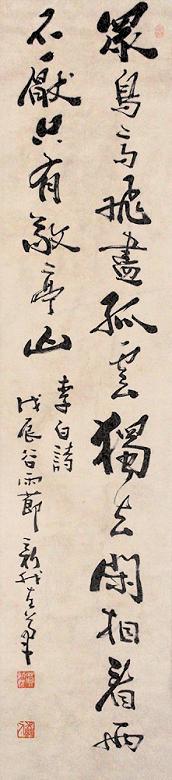 眾鳥高飛盡孤雲獨去閑相看兩
不厭只有敬亭山
李白詩
戊辰谷雨節新我左筆